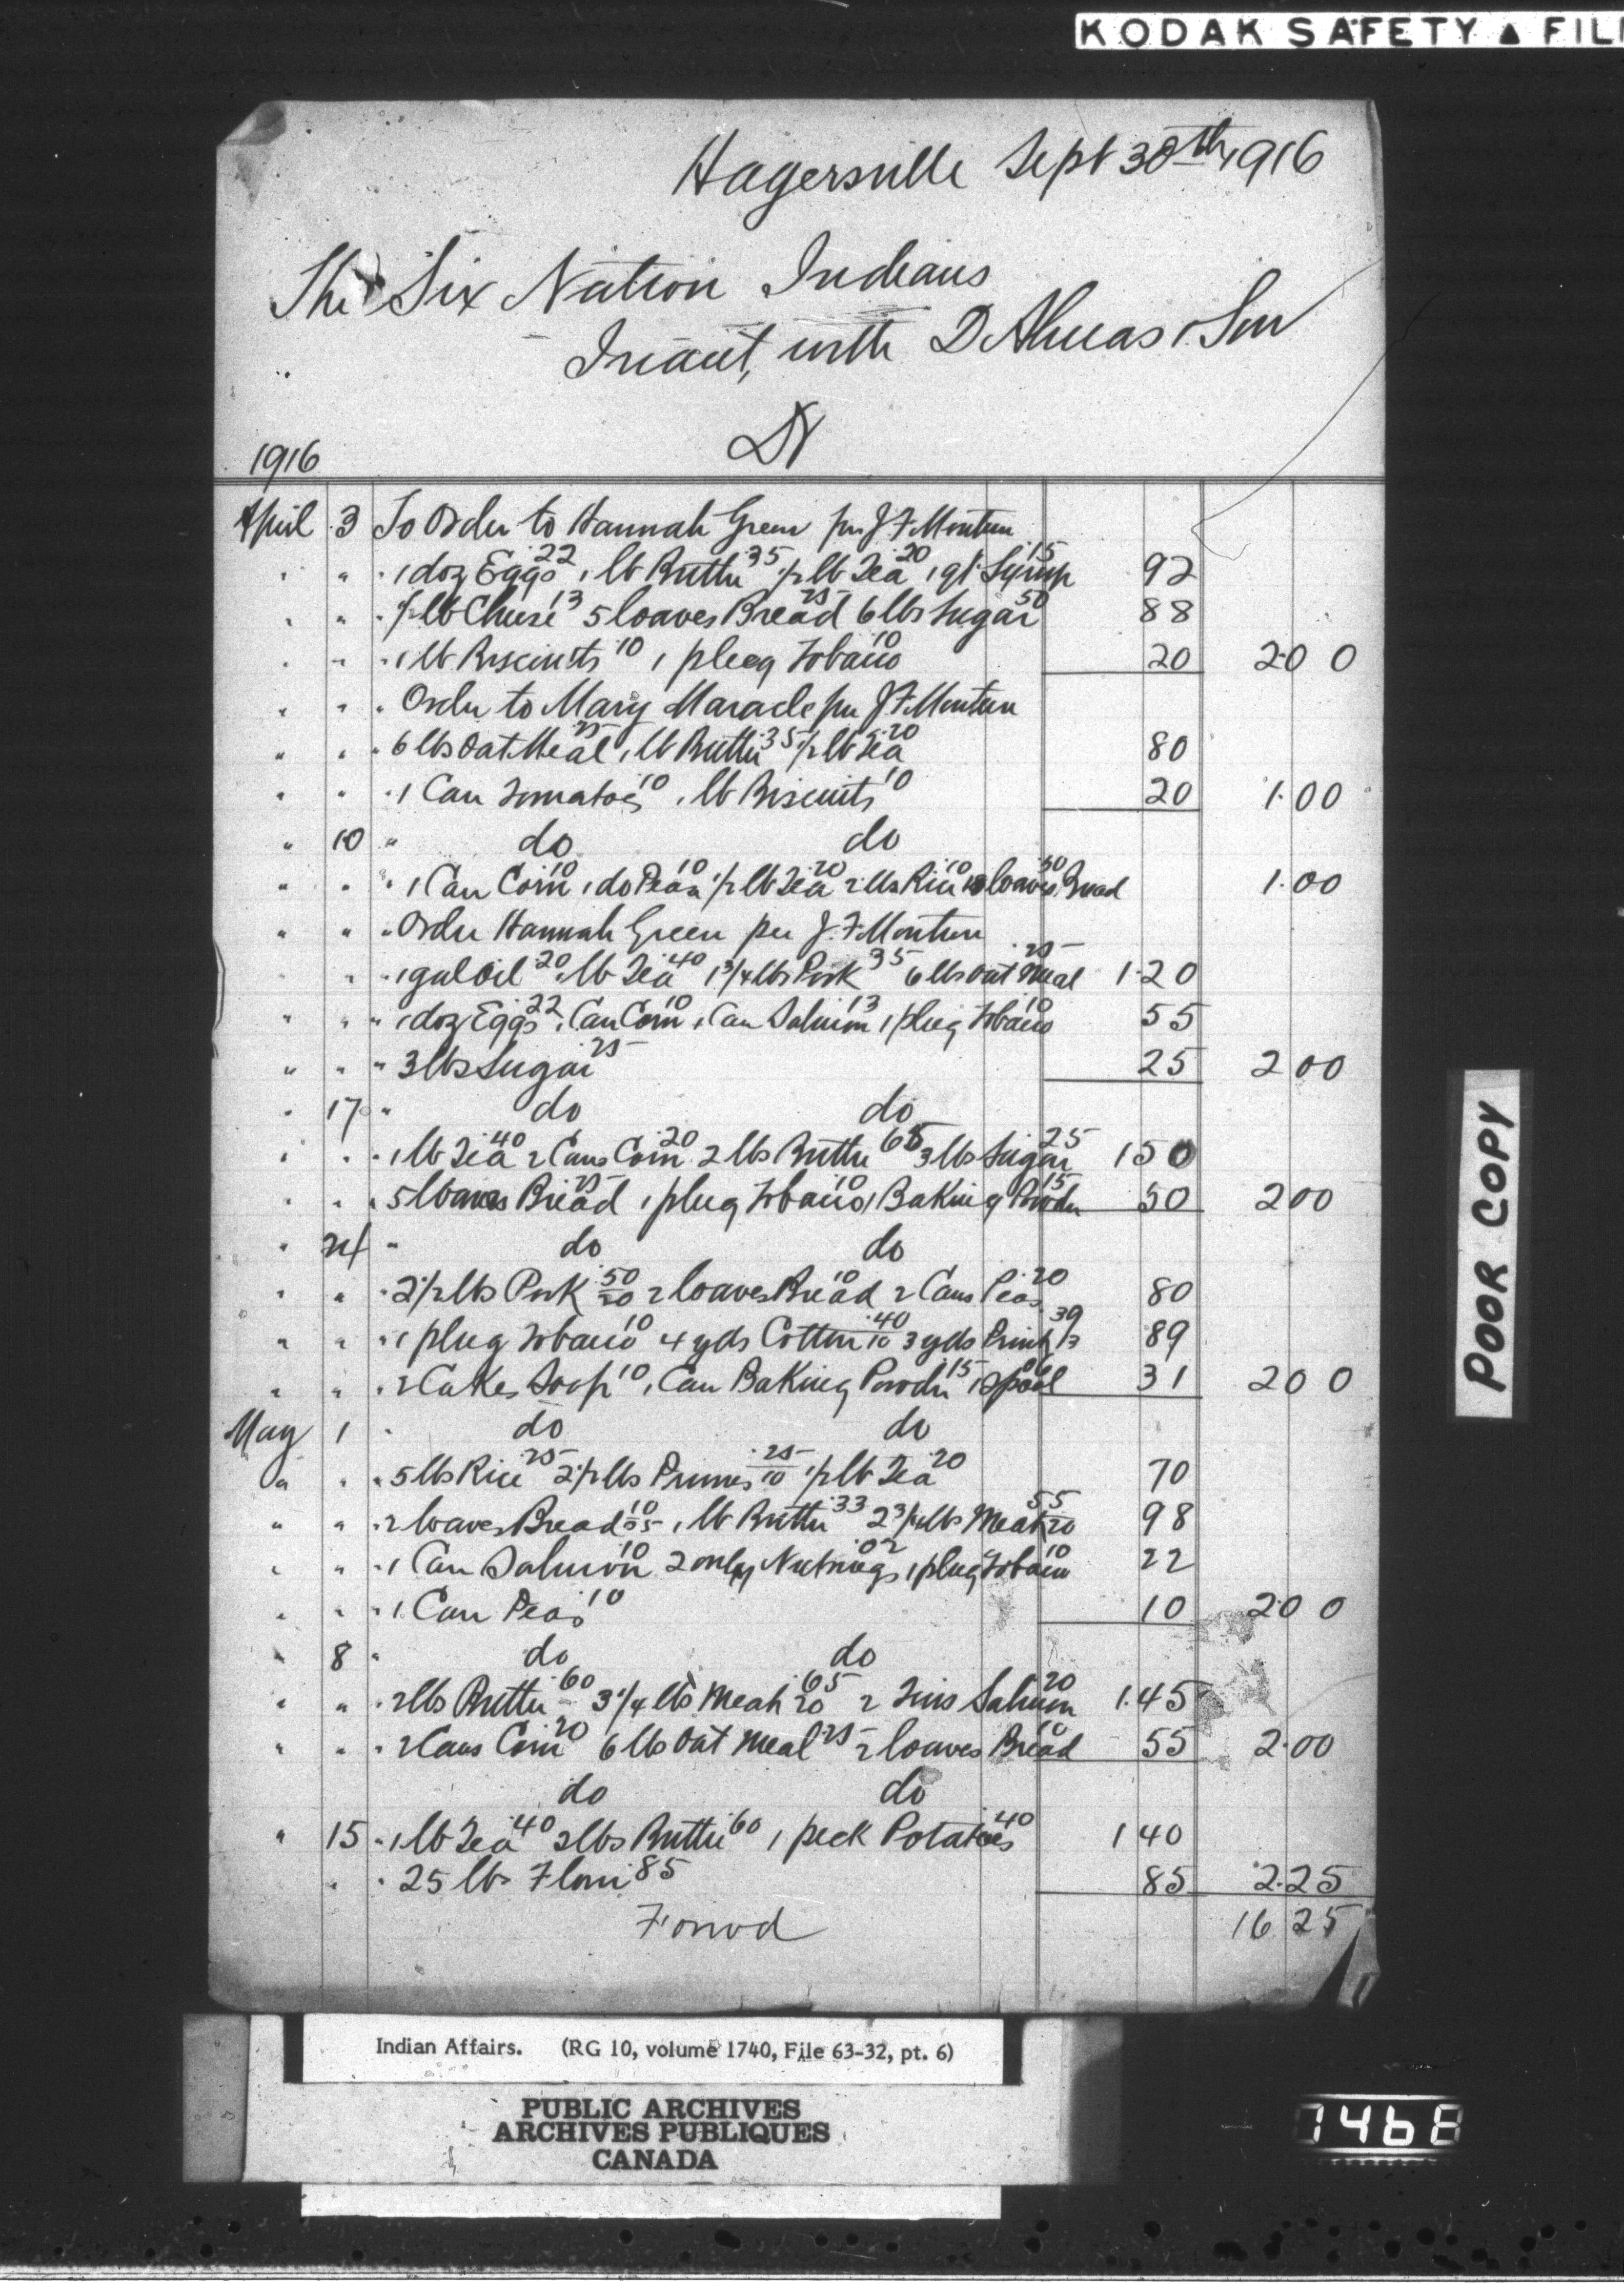 KODAK SAFETY ▲ FIL
Hagersville Sept 30th 1916
The Six Nation Indians
In acct, with D Almas & Son
Dr
1916
April 3 To Order to Hannah Green per J F Monture
" " " 1 doz Eggs 22 1 lb Butter 35 1/2 lb Tea 20 1 qt Syrup 15 92
" " " 1/2 lb Cheese 13 5 loaves Bread 25 6 lbs Sugar 50 88
" " " 1 lb Biscuits 10 1 plug Tobacco 10 20 2.00
" " " Order to Mary Maracle per J F Monture
" " " 6 lbs Oat Meal 25 1 lb Butter 35 1/2 lb Tea 20 80
" " " 1 Can Tomatoes 10 1 lb Biscuits 10 20 1.00
" 10 " do do
" " " 1 Can Corn 10 1 do Peas 10 1/2 lb Tea 20 2 lbs Rice 10 10 loaves Bread 50 1.00
" " " Order Hannah Green per J. F Monture
" " 1 gal Oil 20 1 lb Tea 40 1 3/4 lbs Pork 35 6 lbs Oat Meal 25 1.20
" " " 1 doz Eggs 22 1 Can Corn 10 1 Can Salmon 13 1 plug Tobacco 10 55
" " " 3 lbs Sugar 25 25 2 00
" 17 " do do
" " " 1 lb Tea 40 2 Cans Corn 20 2 lbs Butter 65 3 lbs Sugar 25 1 50
" " " 5 loaves Bread 25 1 plug Tobacco 10 1 Baking Powder 15 50 2 00
" 24 " do do
" " " 2 1/2 lbs Pork 50/20 2 loaves Bread 10 2 Cans Peas 20 80
" " " 1 plug Tobacco 10 4 yds Cotton 40/10 3 yds Print 39/13 89
" " " 2 Cakes Soap 10 1 Can Baking Powder 15 1 Spool 06 31 2 00
May 1 " do do
" " " 5 lbs Rice 25 2 1/2 lbs Prunes 25/10 1/2 lb Tea 20 70
" " " 2 loaves Bread 10/05 1 lb Butter 33 2 3/4 lbs Meat 55/20 98
" " " 1 Can Salmon 10 2 only Nutmegs 02 1 plug Tobacco 10 22
" " " 1 Can Peas 10 10 2.00
" 8 " do do
" " " 2 lbs Butter 60 3 1/4 lbs Meat 65/20 2 Tins Salmon 20 1.45
" " " 2 Cans Corn 20 6 lbs Oat Meal 25 2 loaves Bread 10 55 2.00
do do
" 15 " 1 lb Tea 40 2 lbs Butter 60 1 peck Potatoes 40 1 40
" " 25 lbs Flour 85 85 2.25
Forwd 16 25
POOR COPY
Indian Affairs. (RG 10, volume 1740, File 63-32, pt. 6)
PUBLIC ARCHIVES
ARCHIVES PUBLIQUES
CANADA
1468